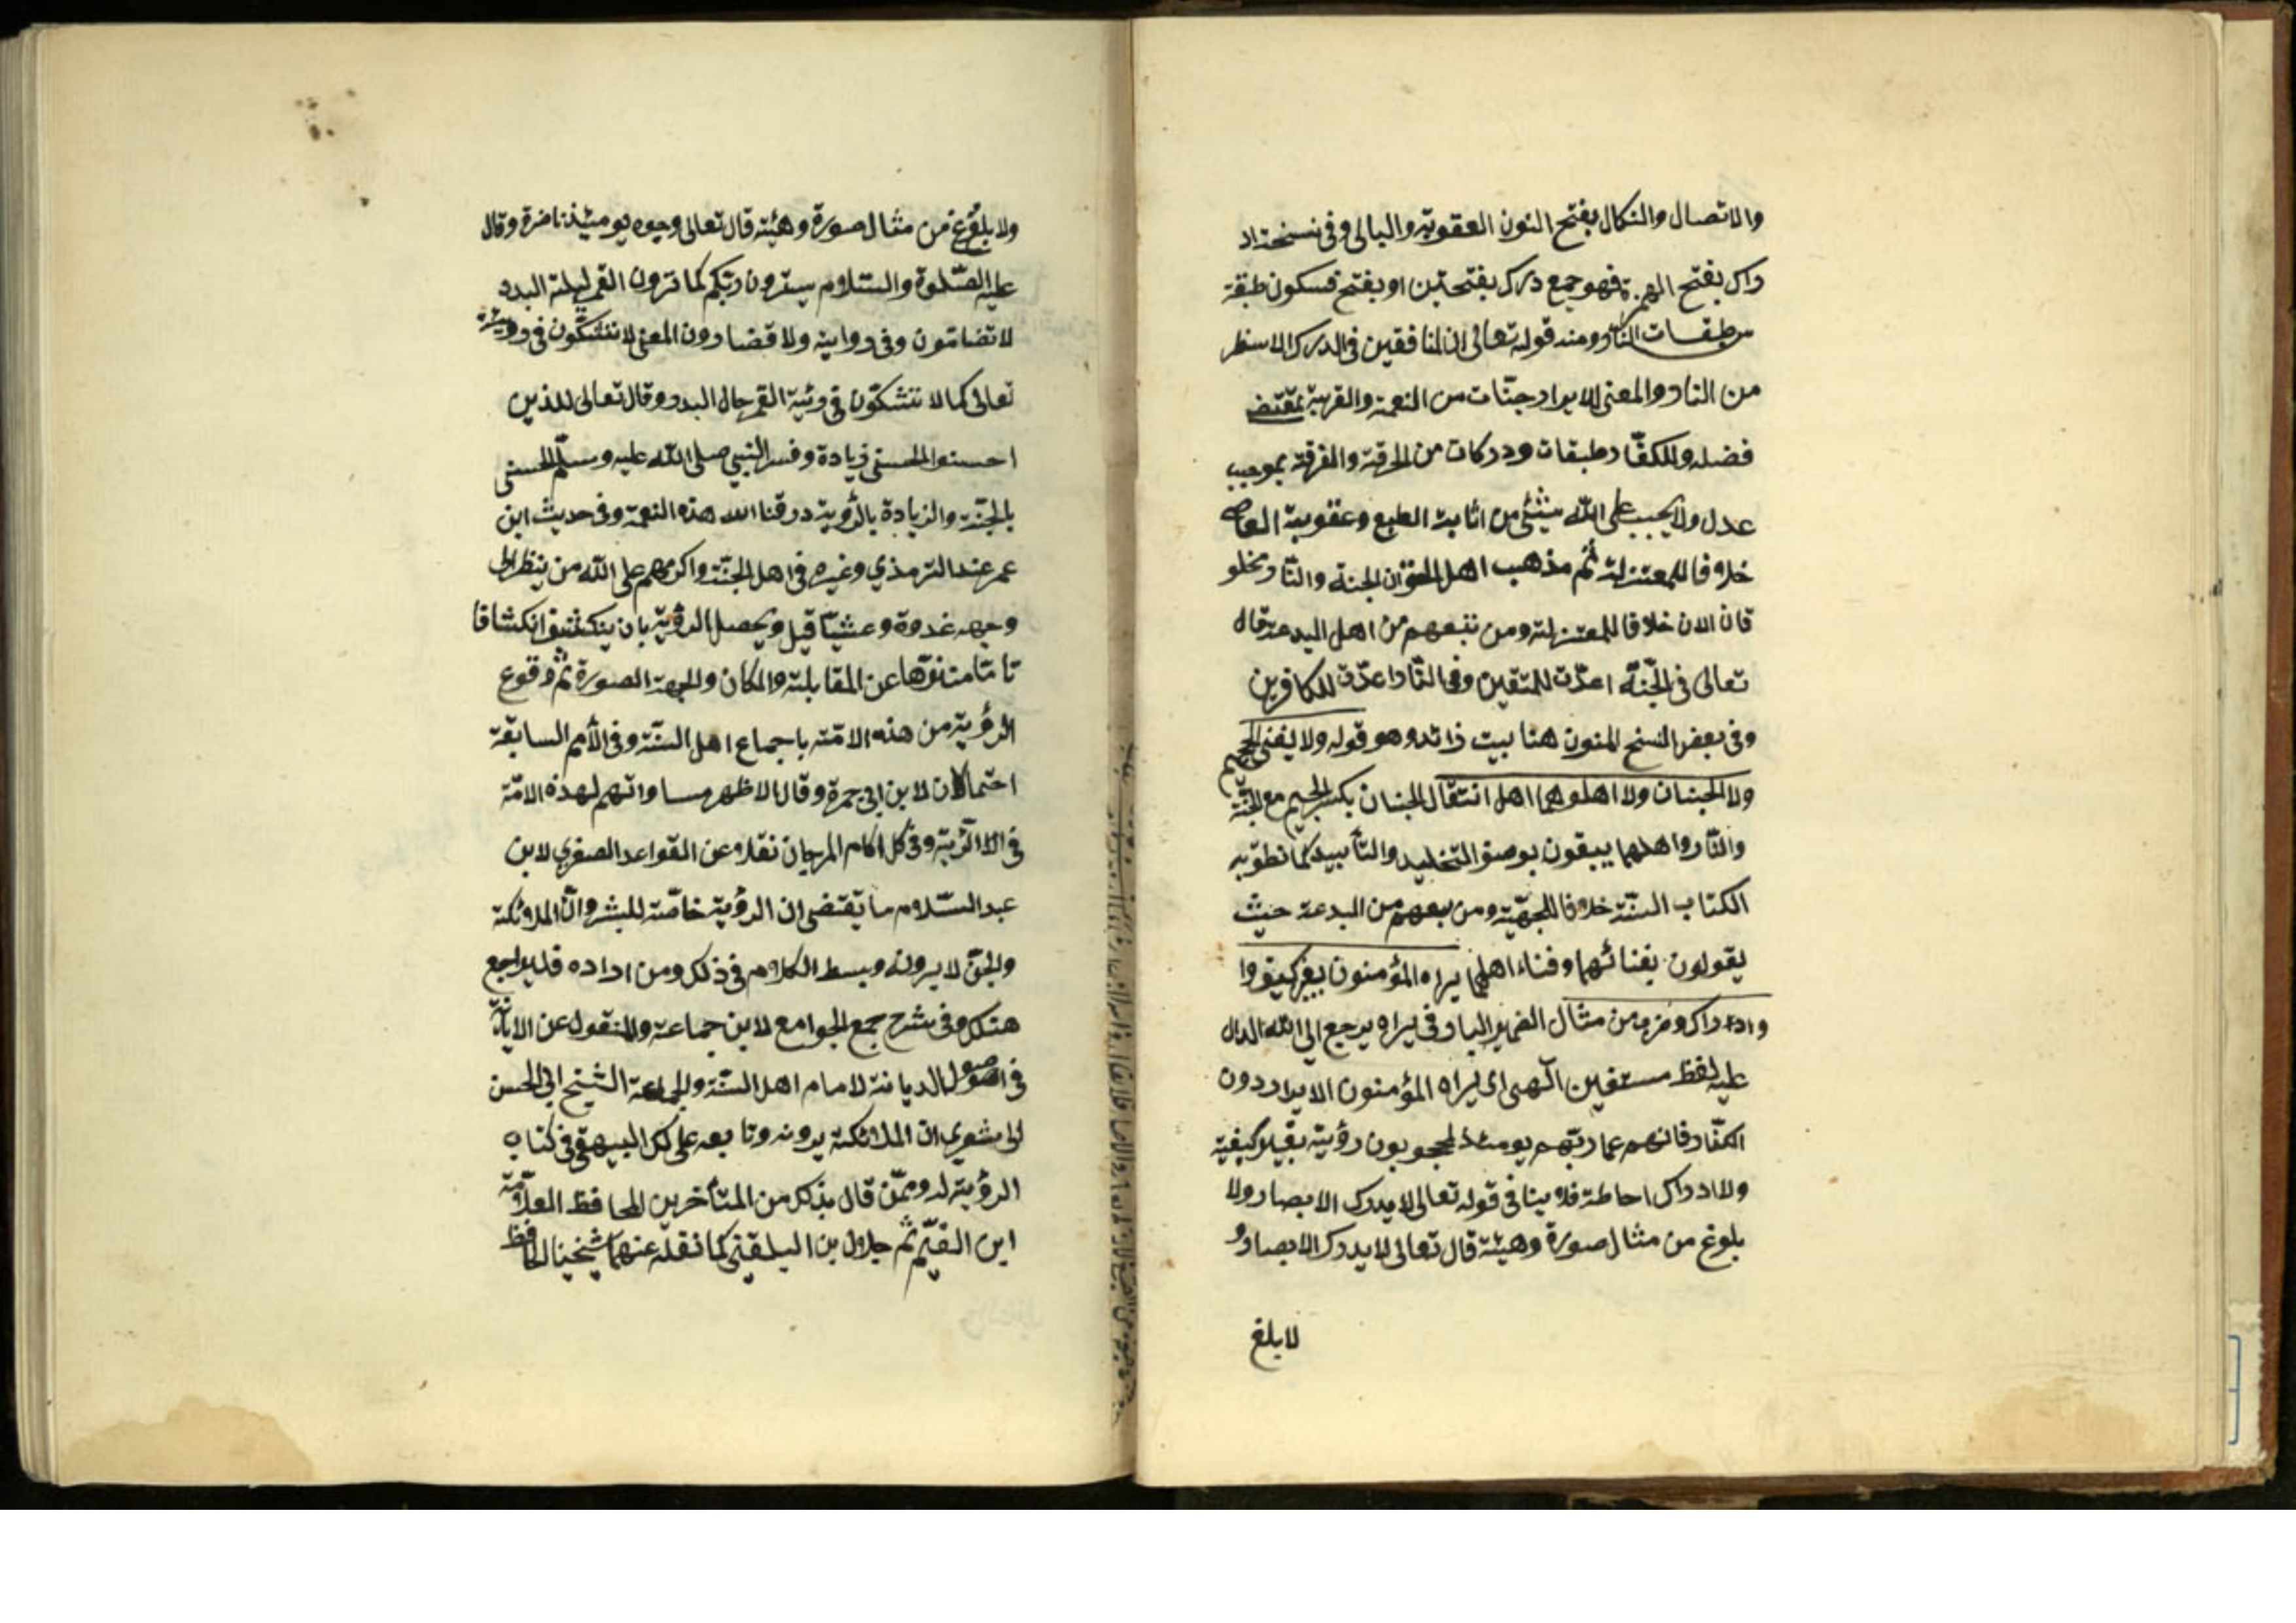 والاتصال والنكال بفتح النون العقوبة والبالى وفى نسخة اد
راك بفتح الهمزة فهو جمع درك بفتحتين او بفتح فسكون طبقة
من طبقات النار ومنه قوله تعالى ان المنافقين فى الدرك الاسفل
من النار والمعنى للابرار جنّات من النعمة والقربة بمقتضى
فضله وللكفّار طبقات ودركات من الحرقة والفرقة بموجب
عدل ولا يجب على الله شيئ من اثابة المطيع وعقوبة العاصى
خلافا للمعتزلة ثم مذهب اهل الحق ان الجنة والنّار مخلو
قان الان خلافا للمعتزلة ومن تبعهم من اهل البدعة قال
تعالى فى الجنّة اعدّت للمتقين وفى النّار اعدّت للكافرين
وفى بعض النسخ المنون هنا بيت زائد وهو قوله ولا يفنى الجحيم
ولا الجنان ولا اهلوهما اهل انتقال الجنان بكسر الجيم مع الجنّة
والنّار واهلهما يبقون بوصف التخليد والتأبيد كما نطق به
الكتاب السنّة خلافا للجهميّة ومن تبعهم من البدعة حيث
يقولون بفنائهما وفناء اهلهما يراه المؤمنون بغير كيف وا
وادراك وضرب من مثال الضمير البار فى يراه يرجع الى الله الدال
عليه لفظ مستفين الهى اى يراه المؤمنون الابرار دون
الكفّار فانهم عن ربّهم يومئذ لمحجوبون رؤية بغير كيفية
ولا ادراك احاطة فلا ينافى قوله تعالى لا يدرك الابصار ولا
بلوغ من مثال صورة وهيئة قال تعالى لا يدرك الابصار و
لا يلغ
ولا بلوغ من مثال صورة وهيئة قال تعالى وجوه يومئذ ناضرة وقال
عليه الصّلوة والسّلام سترون ربّكم كما ترون القمر ليلة البدر
لا تضامّون وفى رواية ولا تضارون المعنى لا تتشكّون فى رؤيته
تعالى كما لا تتشكّون فى رؤية القمر حال البدر وقال تعالى للذين
احسنوا الحسنى زيادة وفسر النبي صلى الله عليه وسلّم الحسنى
بالجنّة والزيادة بالرؤية رزقنا الله هذه النعمة وفى حديث ابن
عمر عند الترمذي وغيره فى اهل الجنّة واكرمهم على الله من ينظر الى
وجهه غدوة وعشيّا قيل ويحصل الرؤية بان ينكشف انكشافا
تامّا منزّها عن المقابلة والمكان والجهة الصورة ثم وقوع
الرؤية من هذه الامّة باجماع اهل السنّة وفى الأمم السابقة
احتمالان لابن ابى جمرة وقال الاظهر مساواتهم لهذه الامّة
فى الرؤية وفى كل اكام المرجان نقلا عن القواعد الصغرى لابن
عبد السّلام ما يقتضى ان الرؤية خاصّة للبشر وانّ الملائكة
والجنّ لا يرونه وبسط الكلام فى ذلك ومن اراده فليراجع
هنالك وفى شرح جمع الجوامع لابن جماعة والمنقول عن الابانة
فى اصول الديانة لامام اهل السنّة والجماعة الشيخ ابى الحسن
الاشعري ان الملائكة يرونه وتابعه على ذلك البيهقى فى كتاب
الرؤية له وممّن قال بذلك من المتأخرين الحافظ العلّامة
ابن القيّم ثم جلال بن البلقينى كما نقله عنهما شيخنا الحافظ